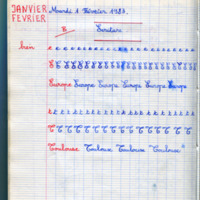 JANVIER
FEVRIER
Mardi 1 Février 1983.
B
Ecriture
bien
Europe Europe Europe Europe Europe Europe
Toulouse Toulouse Toulouse Toulouse